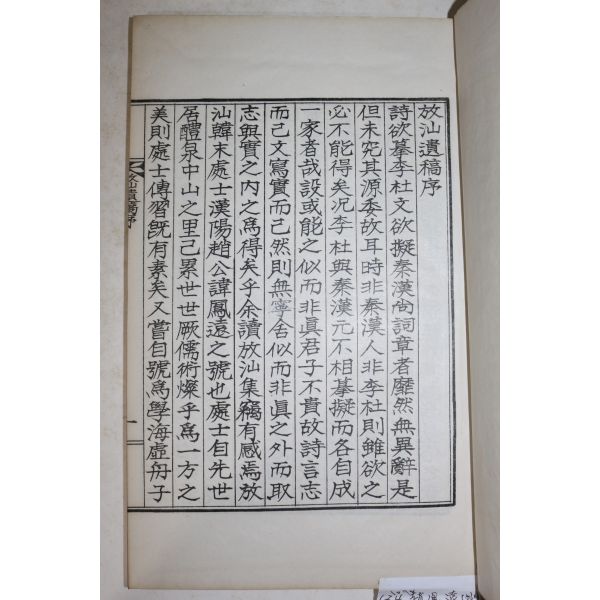 放汕遺稿序
詩欲摹李杜文欲擬秦漢尙詞章者靡然無異辭是
但未究其源委故耳時非秦漢人非李杜則雖欲之
必不能得矣况李杜與秦漢元不相摹擬而各自成
一家者哉設或能之似而非眞君子不貴故詩言志
而已文寫實而已然則無寧舍似而非眞之外而取
志與實之內之爲得矣乎余讀放汕集竊有感焉放
汕韓末處士漢陽趙公諱鳳遠之號也處士自先世
居醴泉中山之里已累世世厥儒術燦乎爲一方之
美則處士傳習旣有素矣又嘗自號爲學海虛舟子
放汕遺稿序
一